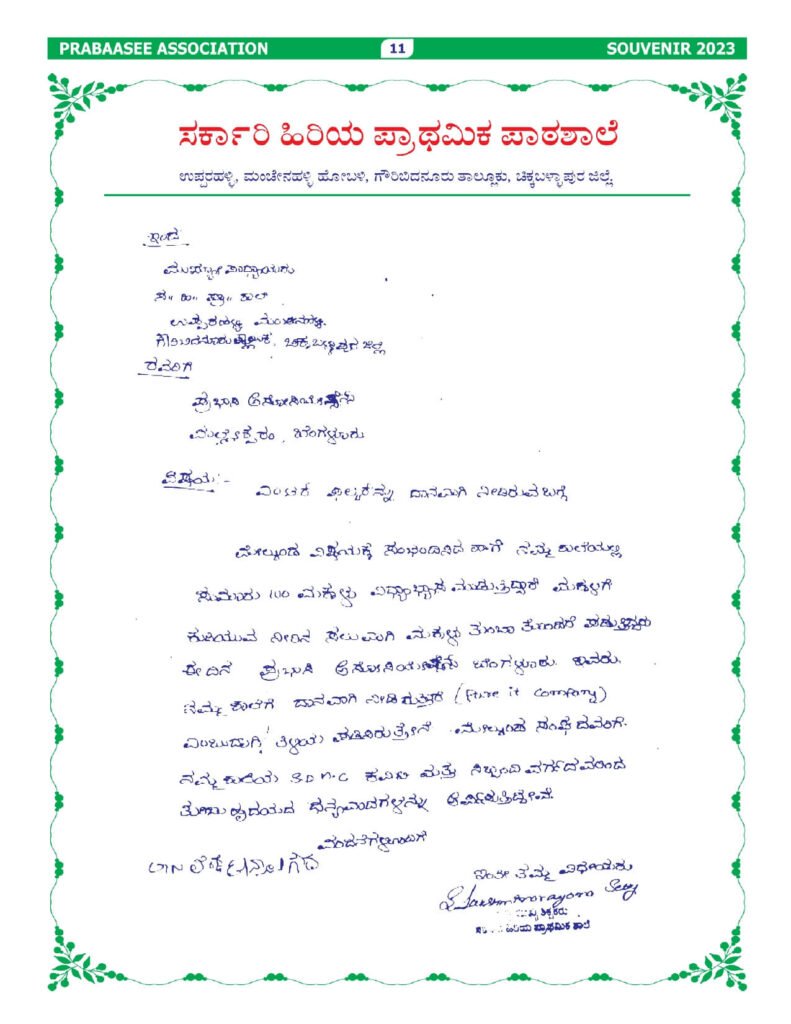 PRABAASEE ASSOCIATION 11 SOUVENIR 2023
ಸರ್ಕಾರಿ ಹಿರಿಯ ಪ್ರಾಥಮಿಕ ಪಾಠಶಾಲೆ
ಉಪ್ಪರಹಳ್ಳಿ, ಮಂಚೇನಹಳ್ಳಿ ಹೋಬಳಿ, ಗೌರಿಬಿದನೂರು ತಾಲ್ಲೂಕು, ಚಿಕ್ಕಬಳ್ಳಾಪುರ ಜಿಲ್ಲೆ.
ಇಂದ
ಮುಖ್ಯೋಪಾಧ್ಯಾಯರು
ಸ॥ ಹಿ॥ ಪ್ರಾ॥ ಶಾಲೆ
ಉಪ್ಪರಹಳ್ಳಿ
ಗೌರಿಬಿದನೂರು ಚಿಕ್ಕಬಳ್ಳಾಪುರ ಜಿಲ್ಲೆ
ರವರಿಗೆ
ಪ್ರಭಾಸಿ
ಮಲ್ಲೇಶ್ವರಂ, ಬೆಂಗಳೂರು
ವಿಷಯ:-
ದಾನವಾಗಿ ನೀಡಿರುವ ಬಗ್ಗೆ
ಮೇಲ್ಕಂಡ ವಿಷಯಕ್ಕೆ ಸಂಭಂದಿಸಿದ ಹಾಗೆ ನಮ್ಮ ಶಾಲೆಯಲ್ಲಿ
ಸುಮಾರು 100 ಮಕ್ಕಳು ವಿಧ್ಯಾಭ್ಯಾಸ ಮಾಡುತ್ತಿದ್ದಾರೆ ಮಕ್ಕಳಿಗೆ
ಕುಡಿಯುವ ನೀರಿನ ಸಲುವಾಗಿ ಮಕ್ಕಳು ತುಂಬಾ ತೊಂದರೆ
ಈ ದಿನ ಪ್ರಭಾಸಿ ಬೆಂಗಳೂರು. ಇವರು.
ನಮ್ಮ ಶಾಲೆಗೆ ದಾನವಾಗಿ ನೀಡಿರುತ್ತಾರೆ (Pure it Company)
ಎಂಬುದಾಗಿ ಮೇಲ್ಕಂಡ ಸಂಘದವರಿಗೆ.
ನಮ್ಮ ಶಾಲೆಯ S D M C ಕಮಿಟಿ ಮತ್ತು ಸಿಬ್ಬಂದಿ ವರ್ಗದವರಿಂದ
ತುಂಬು ಹೃದಯದ ಧನ್ಯವಾದಗಳನ್ನು ಅರ್ಪಿಸುತ್ತಿದ್ದೇವೆ.
ವಂದನೆಗಳೊಂದಿಗೆ
ಇಂತೀ ತಮ್ಮ ವಿಧೇಯರು
ಹಿರಿಯ ಪ್ರಾಥಮಿಕ ಶಾಲೆ